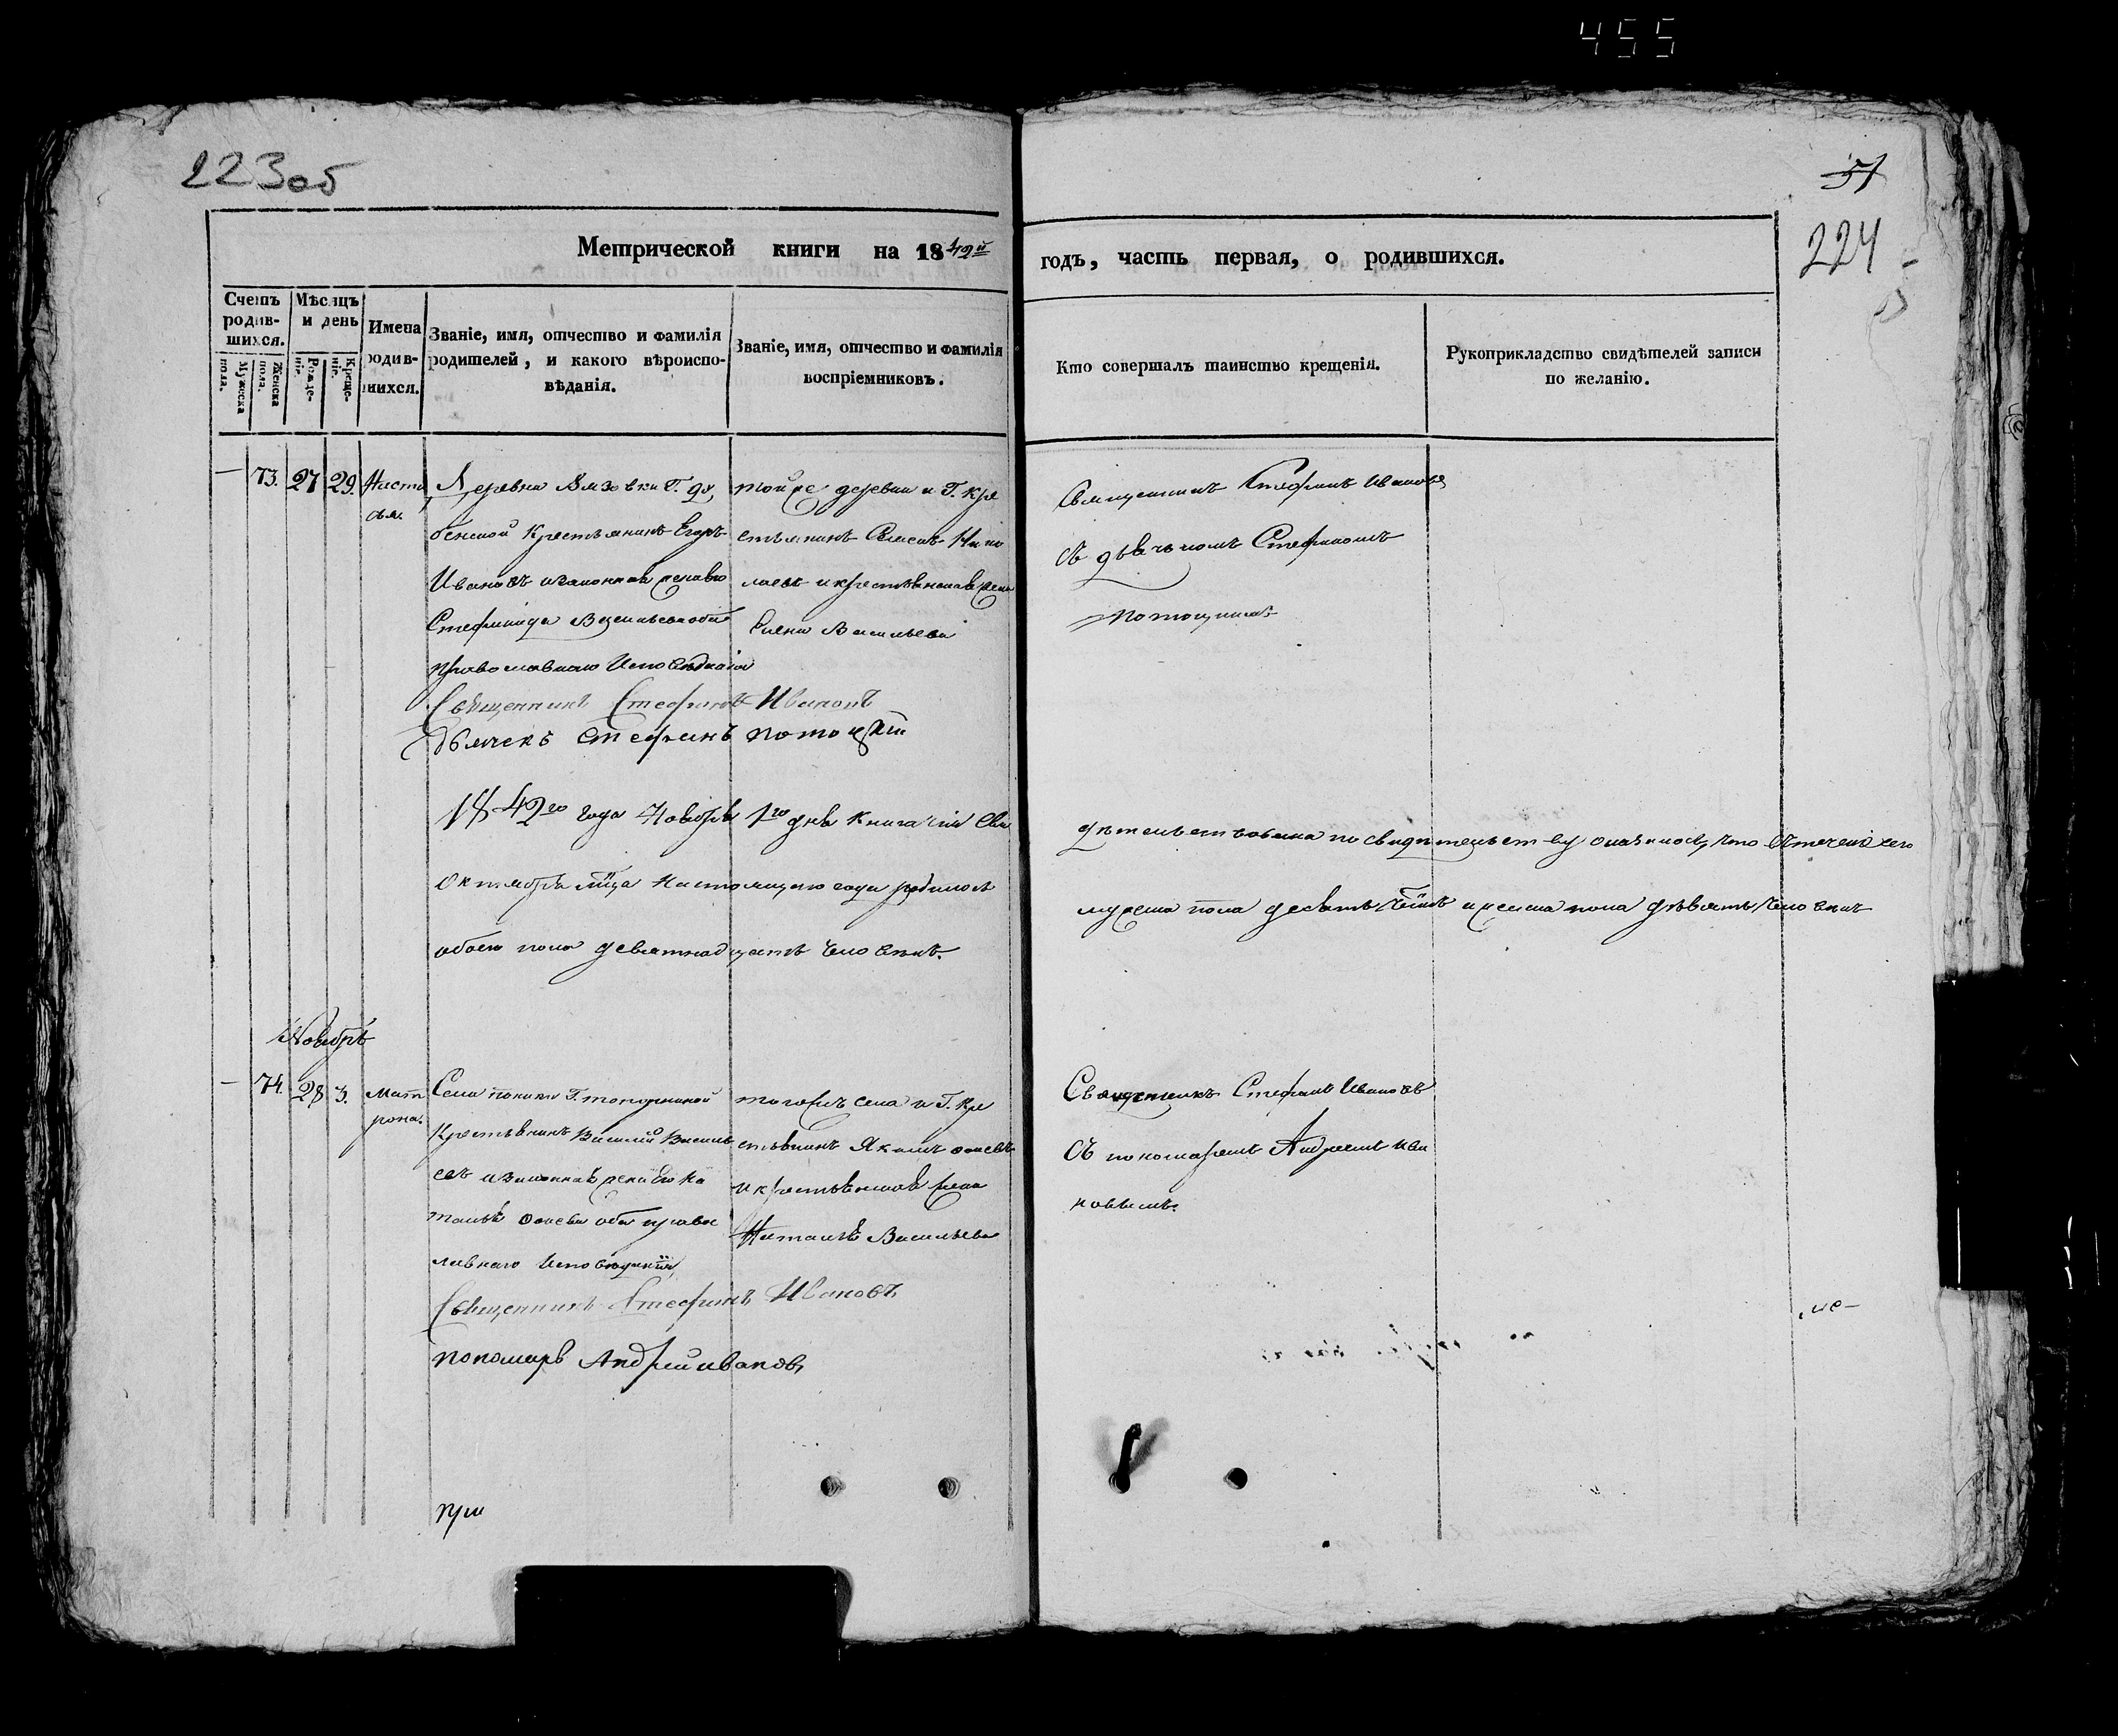 455
223об
51
224
Метрической книги на 1842й
годъ, часть первая, о родившихся.
Счетъ родив-шихся.
Мужеска пола.
Женска пола.
Мѣсяцъ и день
Рожде-нія.
Креще-нія.
Имена родив-шихся.
Званіе, имя, отчество и фамилія
родителей, и какого вѣроиспо-
вѣданія.
Званіе, имя, отчество и фамилія
воспріемниковъ.
Кто совершалъ таинство крещенія.
Рукоприкладство свидѣтелей записи
по желанію.
— 73. 27 29.
Наста
сья.
Деревни Вязовки Г. Ду,
бенской крестьянинъ Егоръ
Ивановъ и законная жена его
Стефанида Васильева оба
православнаго исповѣданія
тойже деревни и Г. кре
стьянинъ Власъ Нико
лаевъ и крестьянская жена
Елена Васильева
Священникъ Стефанъ Ивановъ
съ дьячькомъ Стефаномъ
Потоцкимъ
Священникъ Стефанъ Ивановъ
дьячекъ Стефанъ Потоцкій
1842го года Ноября 1го дня книга сія сви
дѣтельствована по свидѣтельству оказалось, что въ теченіе сего
Октября мца настоящаго года родилось
мужеска пола десять и женска пола дѣвять человекъ
обоего пола девятнадцать человекъ.
Ноябрь
— 74. 28 3.
Матр
рона.
Села Г.
крестьянинъ Василій Василь
евъ и законная жена Его На
талья оба правос
лавнаго исповѣданія
тогожъ села и Г. кре
стьянинъ Яковъ
и крестьянская жена
Наталья Васильева
Священникъ Стефанъ Ивановъ
съ пономаремъ Андреемъ Ива
новымъ.
Священникъ Стефанъ Ивановъ
пономарь Андрей Ивановъ
при